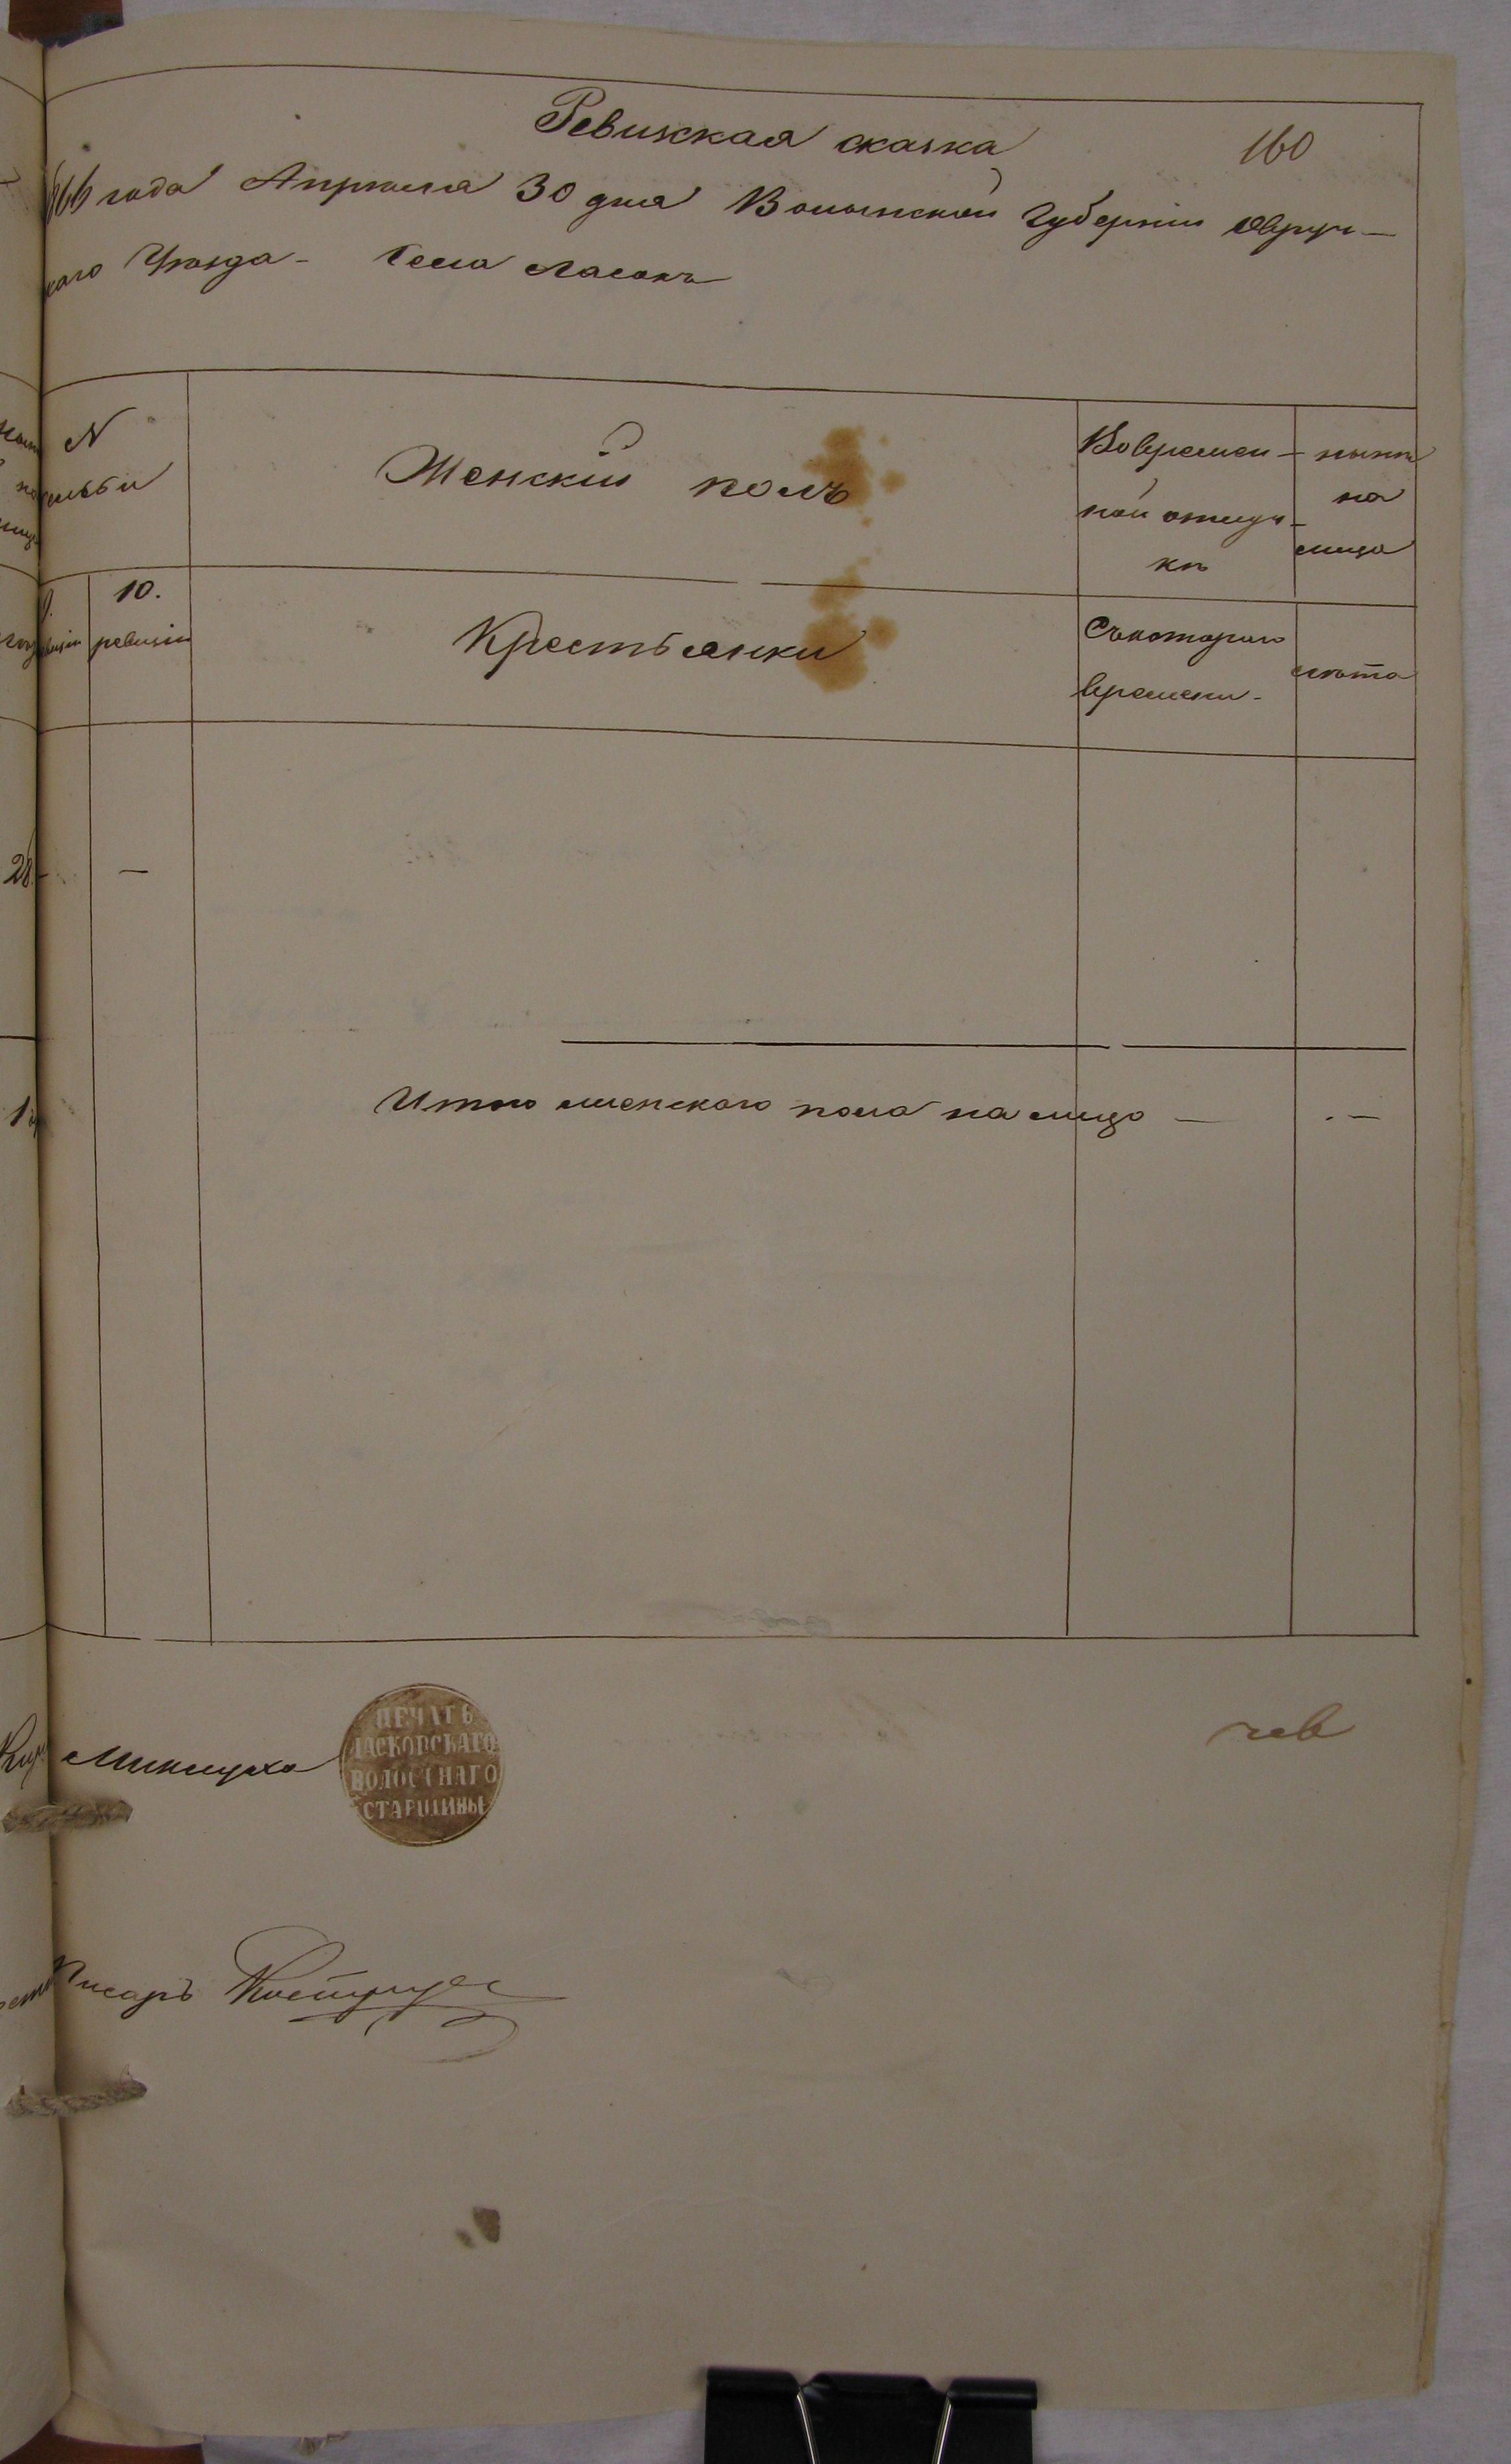 Ревижская сказка
160
866 года Апрѣля 30 дня Волынской Губерніи Овруч-
скаго Уѣзда - Села Ласокъ
N
Женскій полъ
Во времен-
ной отлуч-
кѣ
нынѣ
на
лицо
10.
ревизіи
Крестьянки
Съ котораго
времени -
лѣта
28
—
Итого женскаго пола на лицо — . —
1
Миницкаго
ПЕЧАТЬ
ЛАСКОВСКАГО
ВОЛОСТНАГО
СТАРШИНЫ
Писарь